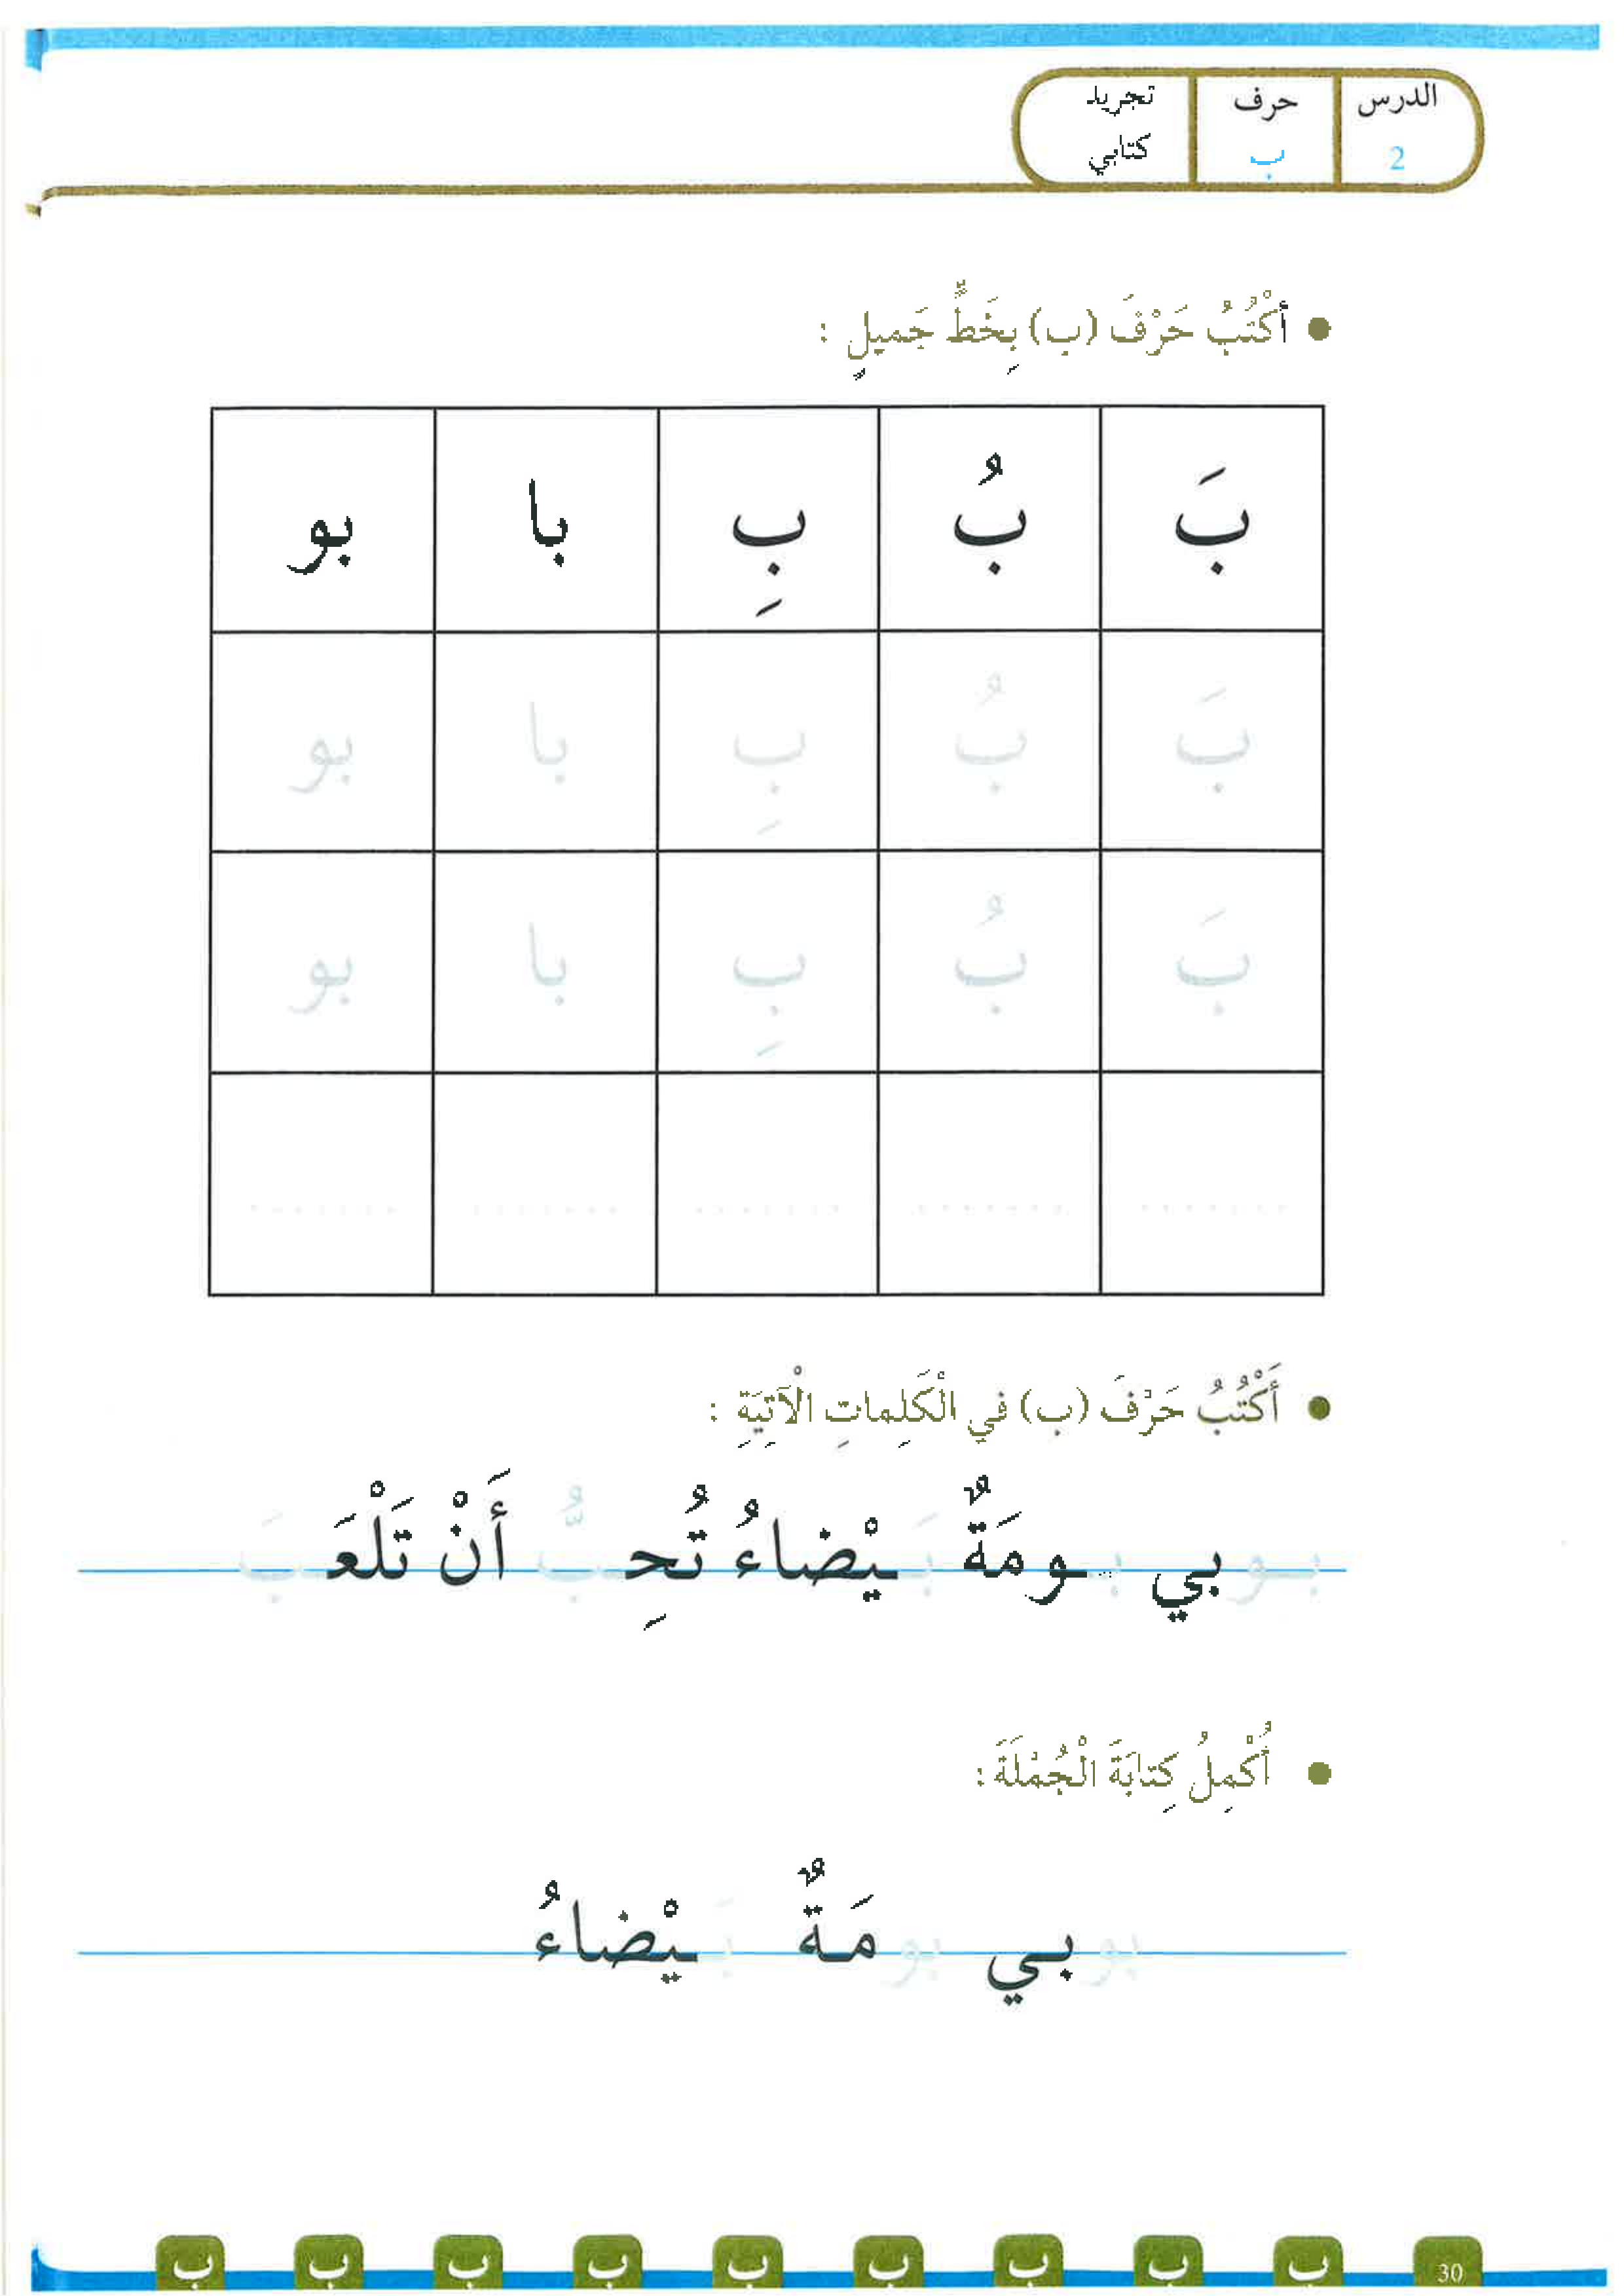 الدرس حرف تجريد
2 ب كتابي
أكْتُبُ حَرْفَ (ب) بِخَطٍّ جَميلٍ :
بَ بُ بِ با بو
بَ بُ بِ با بو
بَ بُ بِ با بو
....... ....... ....... ....... .......
أَكْتُبُ حَرْفَ (ب) في الْكَلِماتِ الْآتِيَةِ :
بـوبي بـومَةٌ بَـيْضاءُ تُحِـبُّ أَنْ تَلْعَـبَ
أُكْمِلُ كِتابَةَ الْجُمْلَةَ :
بوبي بومَةٌ بَـيْضاءُ
ب ب ب ب ب ب ب ب ب 30